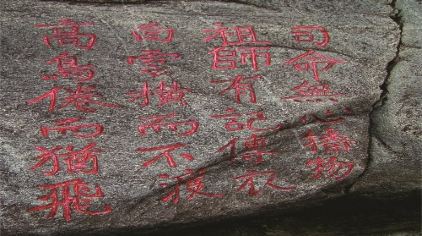 司命無心播物
祖師有記傳衣
白雲橫而不渡
高鳥倦而猶飛